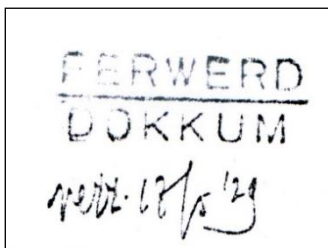 FERWERD
DOKKUM
verz. 13/5 '29